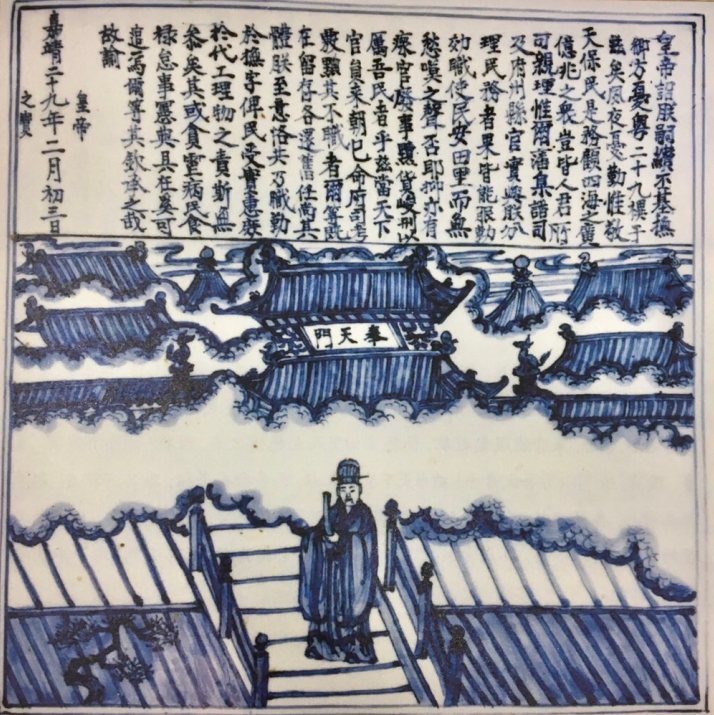 皇帝詔朕嗣纘丕基撫
御方夏粵二十九禩于
茲矣夙夜憂勤惟敬
天保民是務顧四海之廣
億兆之衆豈皆人君所
可親理惟爾藩集諸司
及府州縣官實與朕分
理民務者果皆能恪勤
効職使民安田里而無
愁嘆之聲否耶抑亦有
瘝官廢事黷貨峻刑以
厲吾民者乎茲當天下
官員來朝已命府司考
覈黜其不職者爾等既
在留存各還舊任尚其
體朕至意恪共乃職勤
於撫字俾民受實惠庶
於代工理物之責斯無
忝矣其或貪虐病民食
祿怠事憲典具在曷可
逭焉爾等其欽承之哉
故諭
皇帝
嘉靖二十九年二月初三日
之寶
奉天門